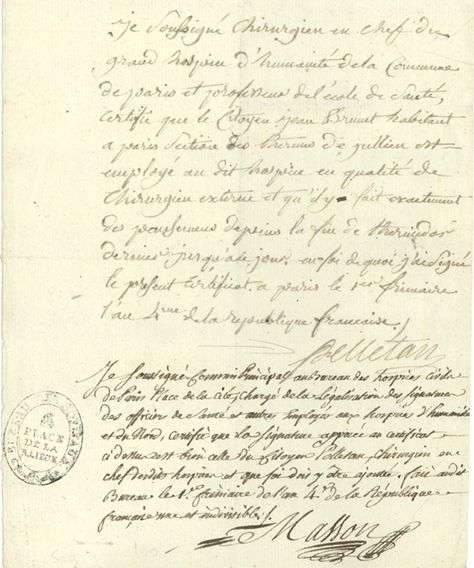 Je Soussigné Chirurgien en chef du
grand hospice d'humanité de la Commune
de paris et professeur de l'école de Santé,
Certifie que le Citoyen jean Brunet habitant
a paris Section des Thermes de jullien est
employé au dit hospice en qualité de
Chirurgien externe et qu'il y fait exactement
des pansemens depuis la fin de thermidor
dernier jusqu'a ce jour. en foi de quoi j'ai Signé
le présent Certificat. a paris le 1er frimaire
l'an 4me de la republique francaise./
Pelletan
Je Soussigné Commis Principal au bureau des hospices Civils
de Paris Place de la Cité, Chargé de la Légalisation des Signatures
des officiers de Santé et autres Employés aux hospices d'humanité
et du Nord, certifie que la Signature apposée au certificat
ci dessus est bien celle du Citoyen Pelletan, Chirurgien en
chef desdits hospices et que foi doit y être ajoutée. Fait audit
Bureau le 1er frimaire de l'an 4e de la République
française une et indivisible./.
Masson
PLACE
DE LA